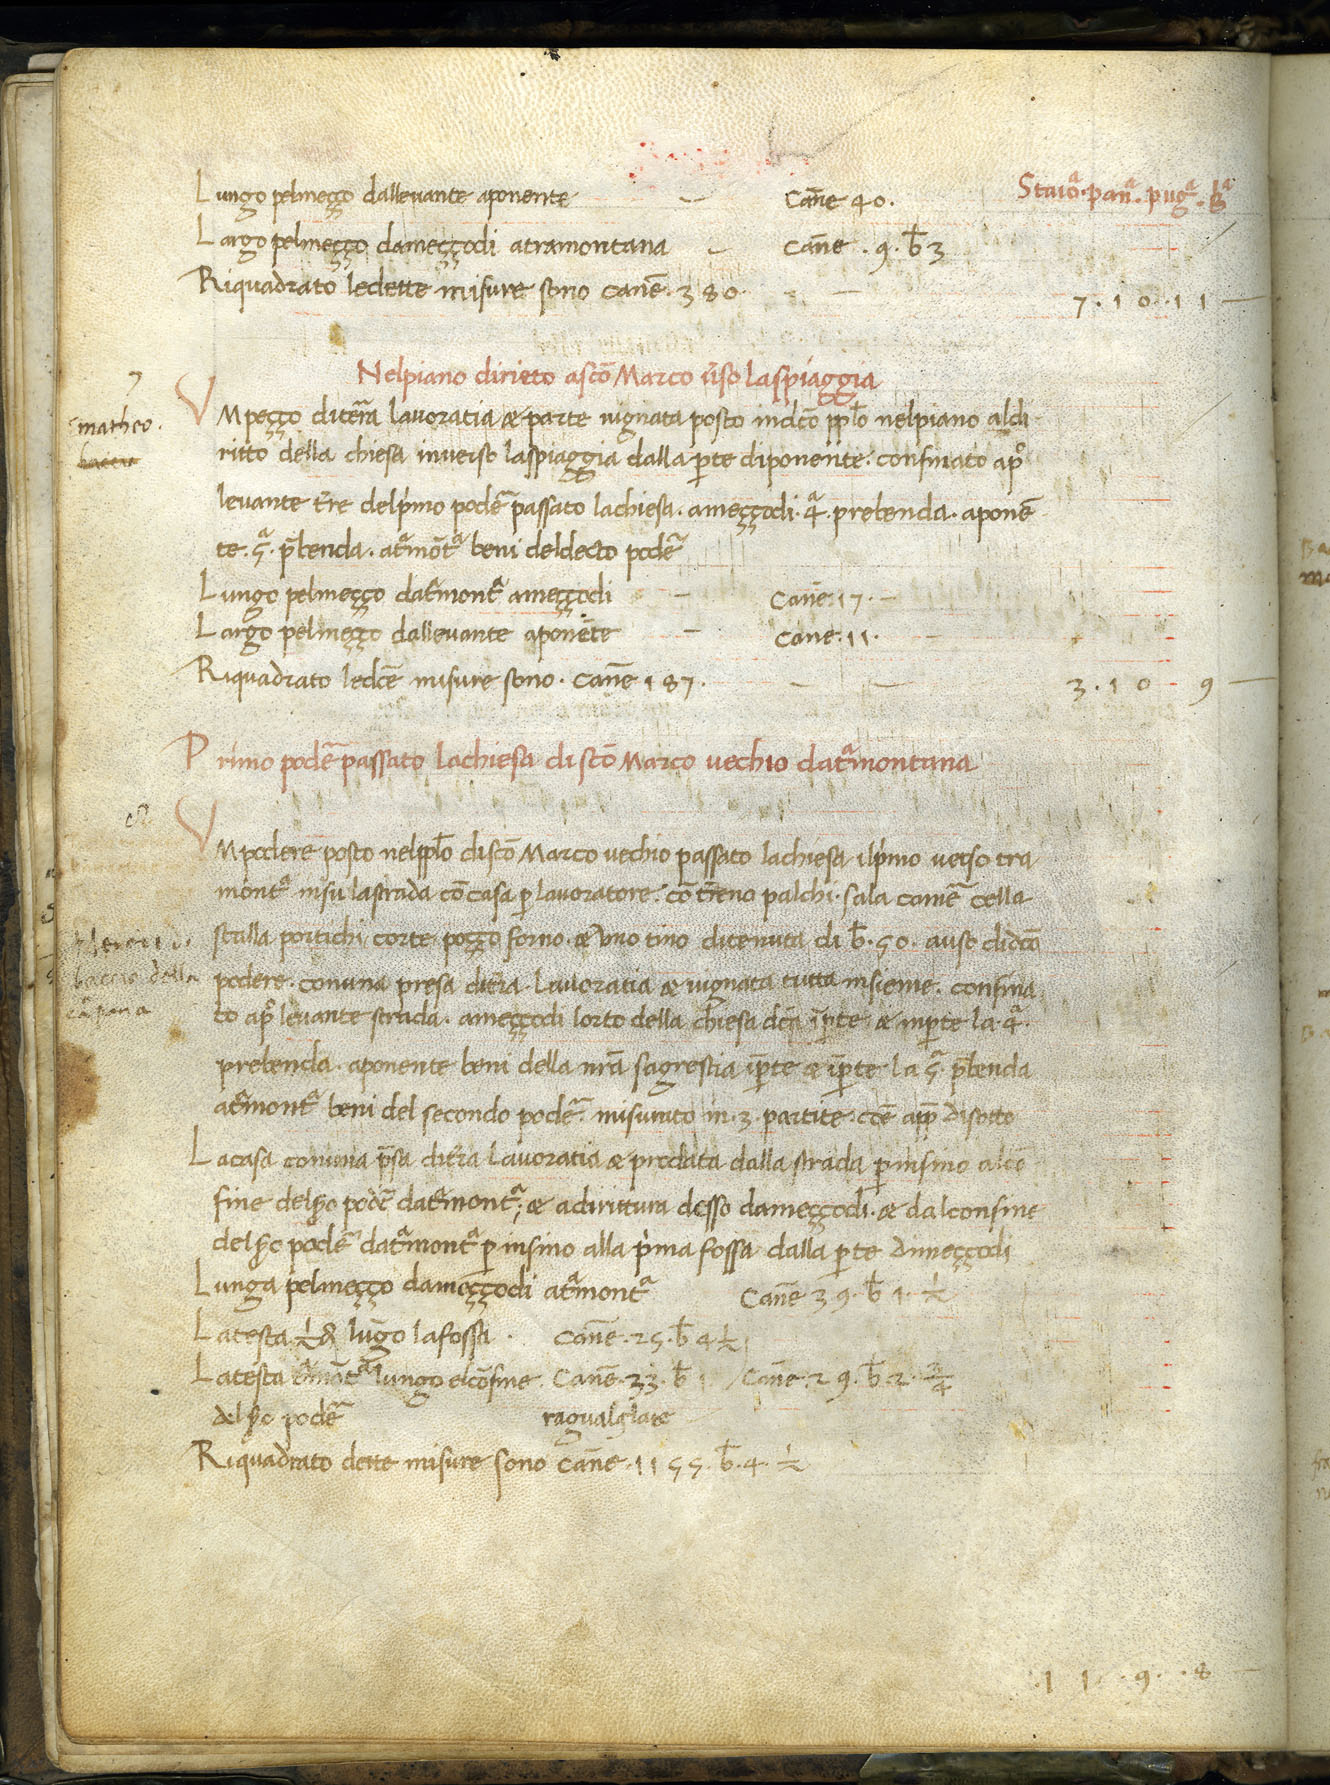 Staioᵃ · panᵃ · pugᵃ · bᵃ
Lungo pelmeçço dallevante aponente — Cañe 40.
Largo pelmeçço dameççodi atramontana — Cañe . 9 . b̄ 3
Riquadrato ledette misure sono Canē . 380 . — 7 . 10 . 11 —
Nelpiano dirieto ascō Marco ṽso laspiaggia
7
matheo.
VMpeçço diteř̃a lavoratia & parte vignata posto indcō ppl̄o nelpiano aldi
ritto della chiesa inverso laspiaggia dalla p̱te diponente . confinato apº
levante tr̃e delp̍mo podeᵃ passato lachiesa . ameççodi . 4ᵃ . prebenda . aponē
te . 5ᵃ . p̄benda . atᵃmōtᵃ beni deldecto podeᵃ
Lungo pelmeçço datᵃmontᵃ ameççodi — Cañe . 17 . —
Largo pelmeçço dallevante aponēte — Cane . 11 .
Riquadrato ledcē misure sono . Canē 187 . — 3 . 10 - 9 —
Primo podeᵃ passato lachiesa di scō Marco vechio datᵃmontana
8
VMpodere posto nelppl̄o discō Marco vechio passato lachiesa ilp̍mo verso tra
montᵃ insu lastrada cō casa p̱ lavoratore . cō tr̃eno palchi . sala cameᵃ cella
stalla portichi corte poçço forno . & uno tino ditenuta di b̄ . 50 . auso didcō
baccio della
podere . conuna presa diteř̃a . lavoratia & vignata tutta insieme . confina
to apº levante strada . ameççodi lorto della chiesa dcā ip̱te & inp̱te la . 4ᵃ .
prebenda . aponente beni della nrā sagrestia ip̱te & ip̱te la 5ᵃ p̄benda
atᵃmontᵃ beni del secondo podeᵃ . misurato in . 3 . partite . cōe app̄ disotto
Lacasa conuna p̄sa diteř̃a lavoratia & prodata dalla strada p̱ insino alcō
fine delşo podeᵃ datᵃmontᵃ ; & adirittura desso dameççodi . & dalconfine
delşo podeᵃ datᵃmontᵃ p̱ insino alla p̍ma fossa dalla p̱te dimeççodi
Lunga pelmeçço dameççodi atᵃmontᵃ Cañe 39 . b̄ 1 . ½
Latesta ½dì lūgo lafossa . Canē . 25 . b̄ 4 ½
Latesta tᵃmōtᵃ lungo elcōfine . Canē . 33 . b̄ 1 / Canē . 29 . b̄ 2 . ¾
delşo podeᵃ ragualglate
Riquadrato dette misure sono cañe . 1155 . b̄ . 4 . ½
. 11 . 9 . . 8 —